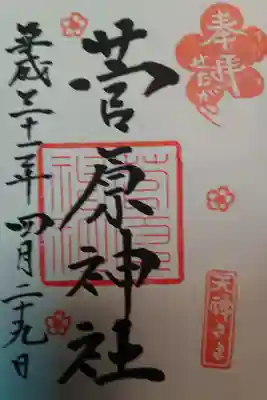 奉拝
菅原神社
天神さま
平成三十一年四月二十九日